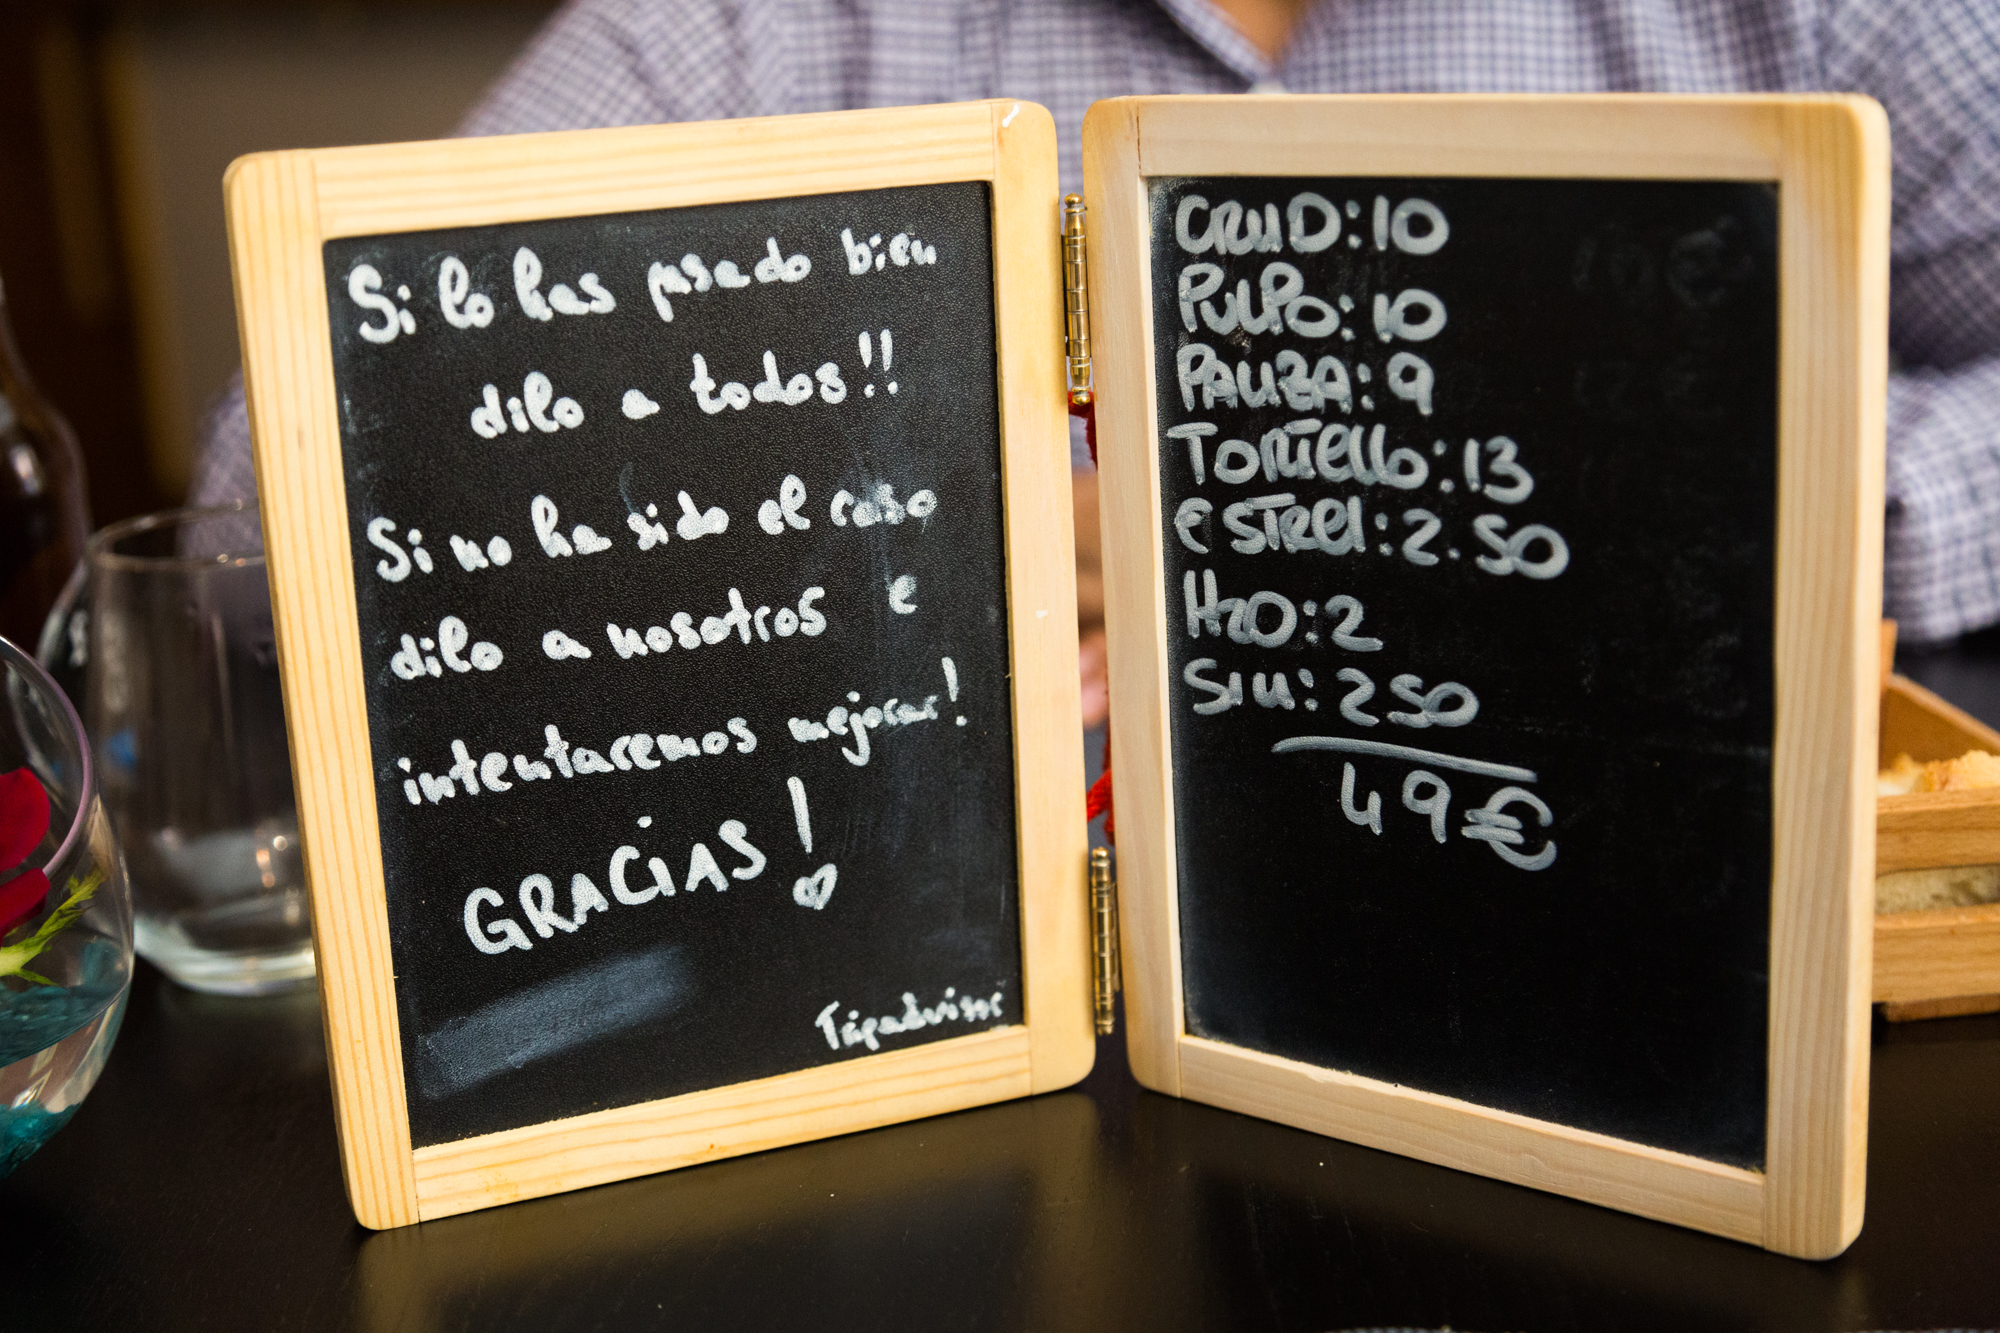 Si lo has pasado bien
dilo a todos!!
Si no ha sido el caso
dilo a nosotros e
intentaremos mejorar!
GRACiAS!
Tripadvisor
CRUD: 10
PULPO: 10
PAUZA: 9
TORTELLO: 13
ESTREL: 2.50
H2O: 2
SIN: 2 50
49€